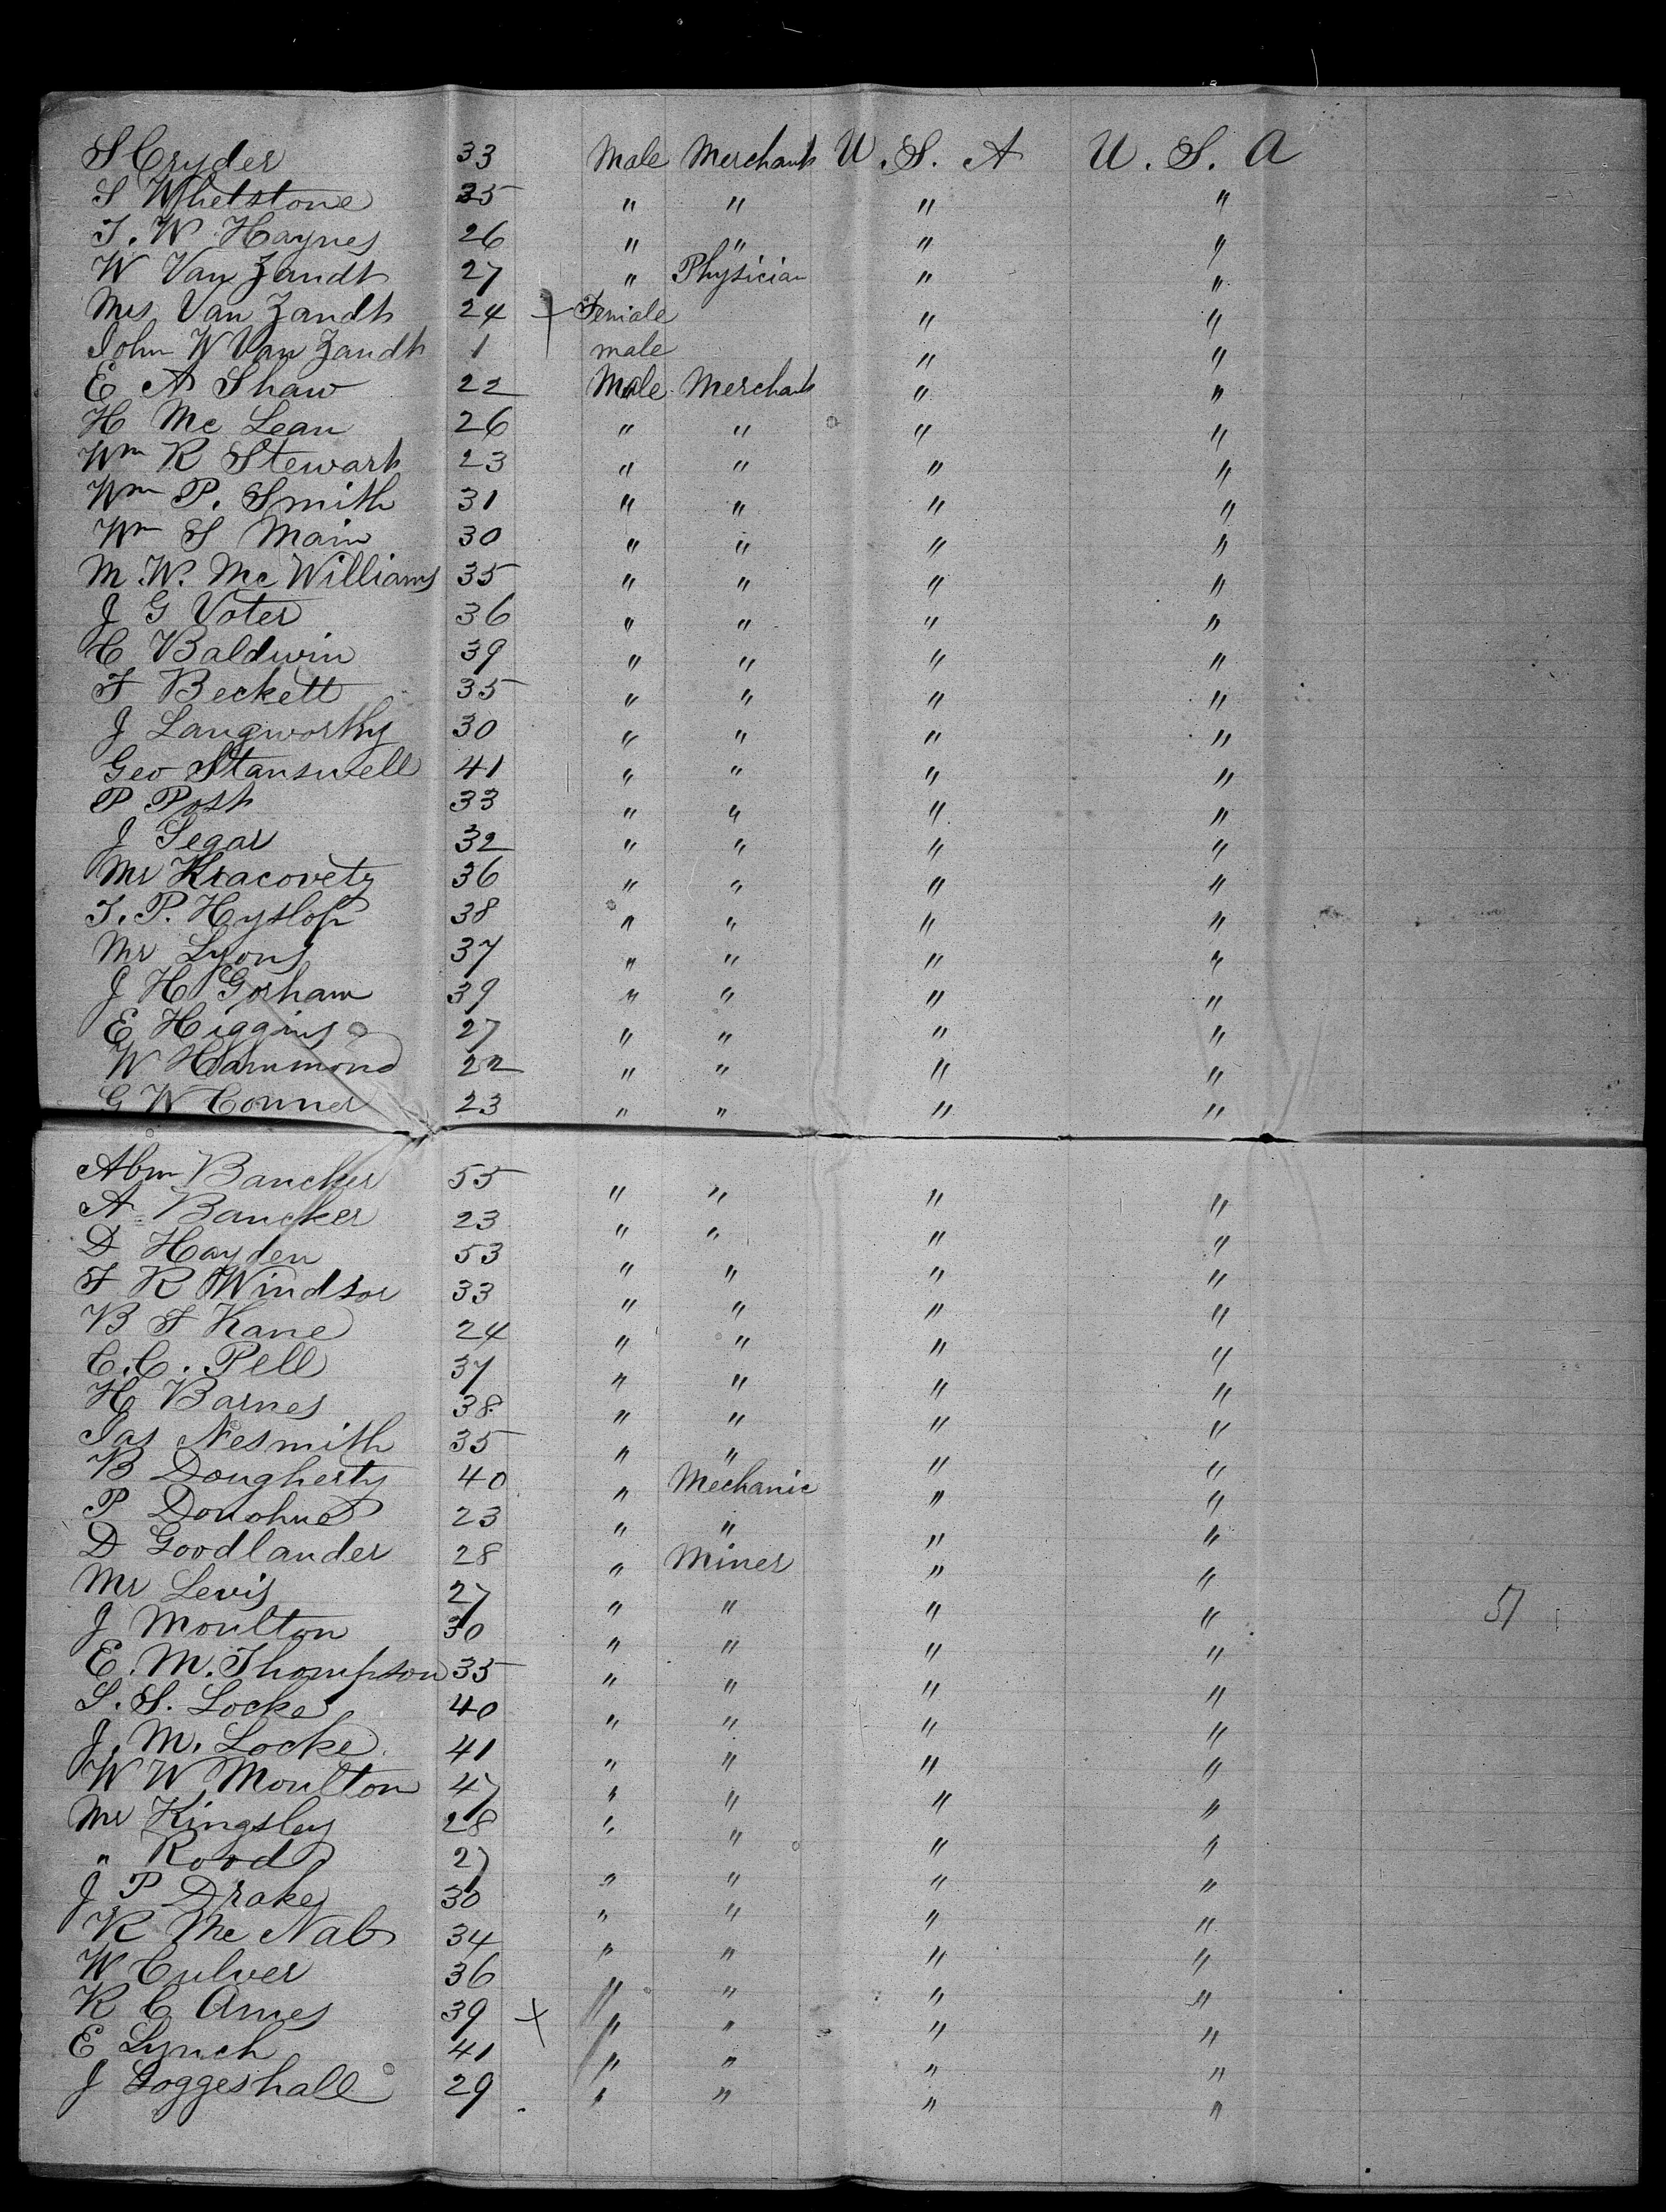 S Cryder 33 Male Merchant U. S. A U. S. A
S Whetstone 35 " " " "
T. W. Haynes 26 " " " "
W Van Zandt 27 " Physician " "
Mrs Van Zandt 24 Female " "
John W Van Zandt 1 male " "
E A Shaw 22 Male Merchant " "
H Mc Lean 26 " " " "
Wm R Stewart 23 " " " "
Wm P. Smith 31 " " " "
Wm S Main 30 " " " "
M. W. Mc Williams 35 " " " "
J G Voter 36 " " " "
C Baldwin 39 " " " "
F Beckett 35 " " " "
J Langworthy 30 " " " "
Geo Stanswell 41 " " " "
P Post 33 " " " "
J Segar 32 " " " "
Mr Kracovety 36 " " " "
T. P. Hyslop 38 " " " "
Mr Lyons 37 " " " "
J H Gorham 39 " " " "
E Higgins 27 " " " "
W Hammond 22 " " " "
G W Conner 23 " " " "
Abm Bancker 55 " " " "
A Bancker 23 " " " "
D Hayden 53 " " " "
F R Windsor 33 " " " "
B F Kane 24 " " " "
C. C. Pell 37 " " " "
H Barnes 38 " " " "
Jas Nesmith 35 " " " "
B Dougherty 40 " Mechanic " "
P Donohue 23 " " " "
D Goodlander 28 " Miner " "
Mr Levis 27 " " " " 51
J Moulton 30 " " " "
E. M. Thompson 35 " " " "
S. S. Locke 40 " " " "
J. M. Locke 41 " " " "
W W Moulton 47 " " " "
Mr Kingsley 28 " " " "
" Rood 27 " " " "
J P Drake 30 " " " "
R Mc Nab 34 " " " "
W Culver 36 " " " "
R C Ames 39 x " " " "
E Lynch 41 " " " "
J Coggeshall 29 " " " "